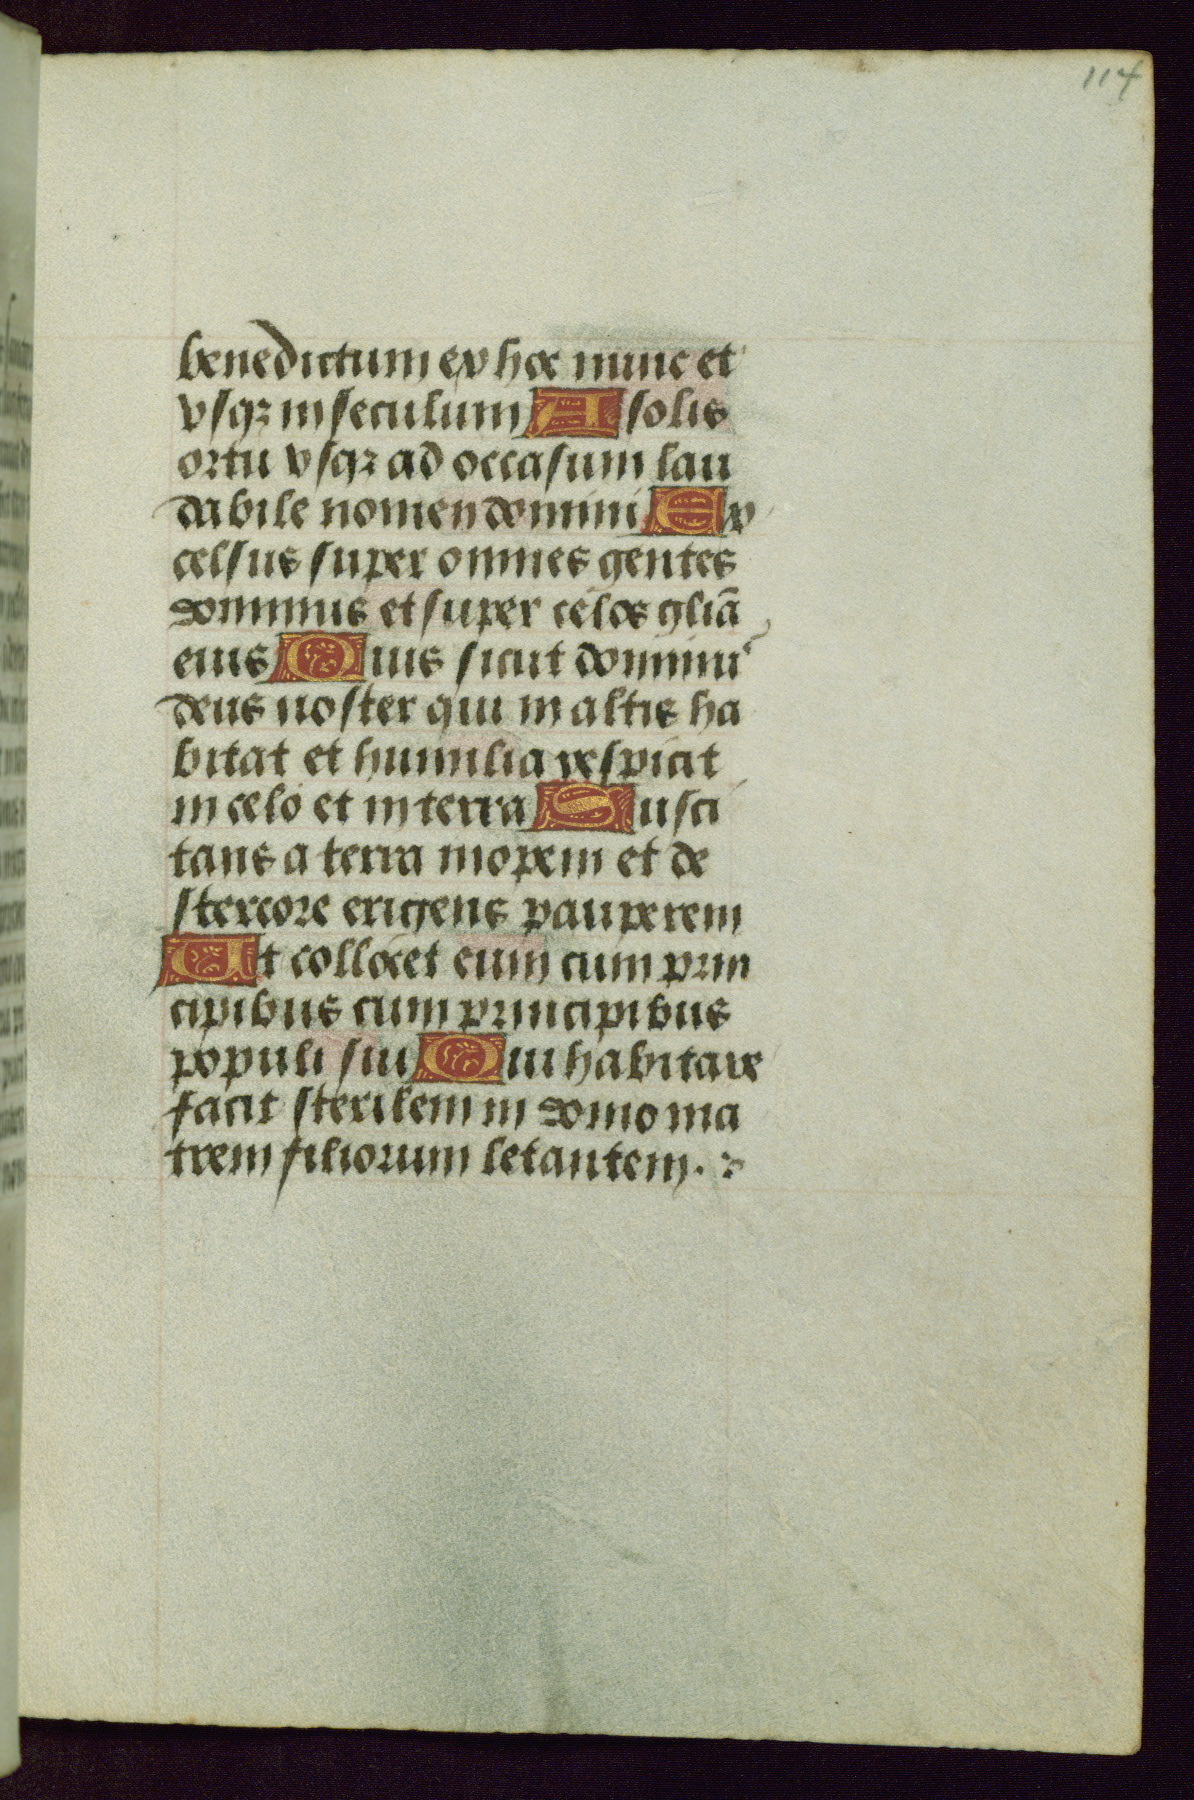 114
benedictum ex hoc nunc et
vsqꝫ in seculum A solis
ortu vsqꝫ ad occasum lau
dabile nomen domini Ex
celsus super omnes gentes
dominus et super celos gliā
eius Quis sicut dominꝰ
deus noster qui in altis ha
bitat et humilia respicit
in celo et in terra Susci
tans a terra inopem et de
stercore erigens pauperem
Ut collocet eum cum prin
cipibus cum principibus
populi sui Qui habitare
facit sterilem in domo ma
trem filiorum letantem.